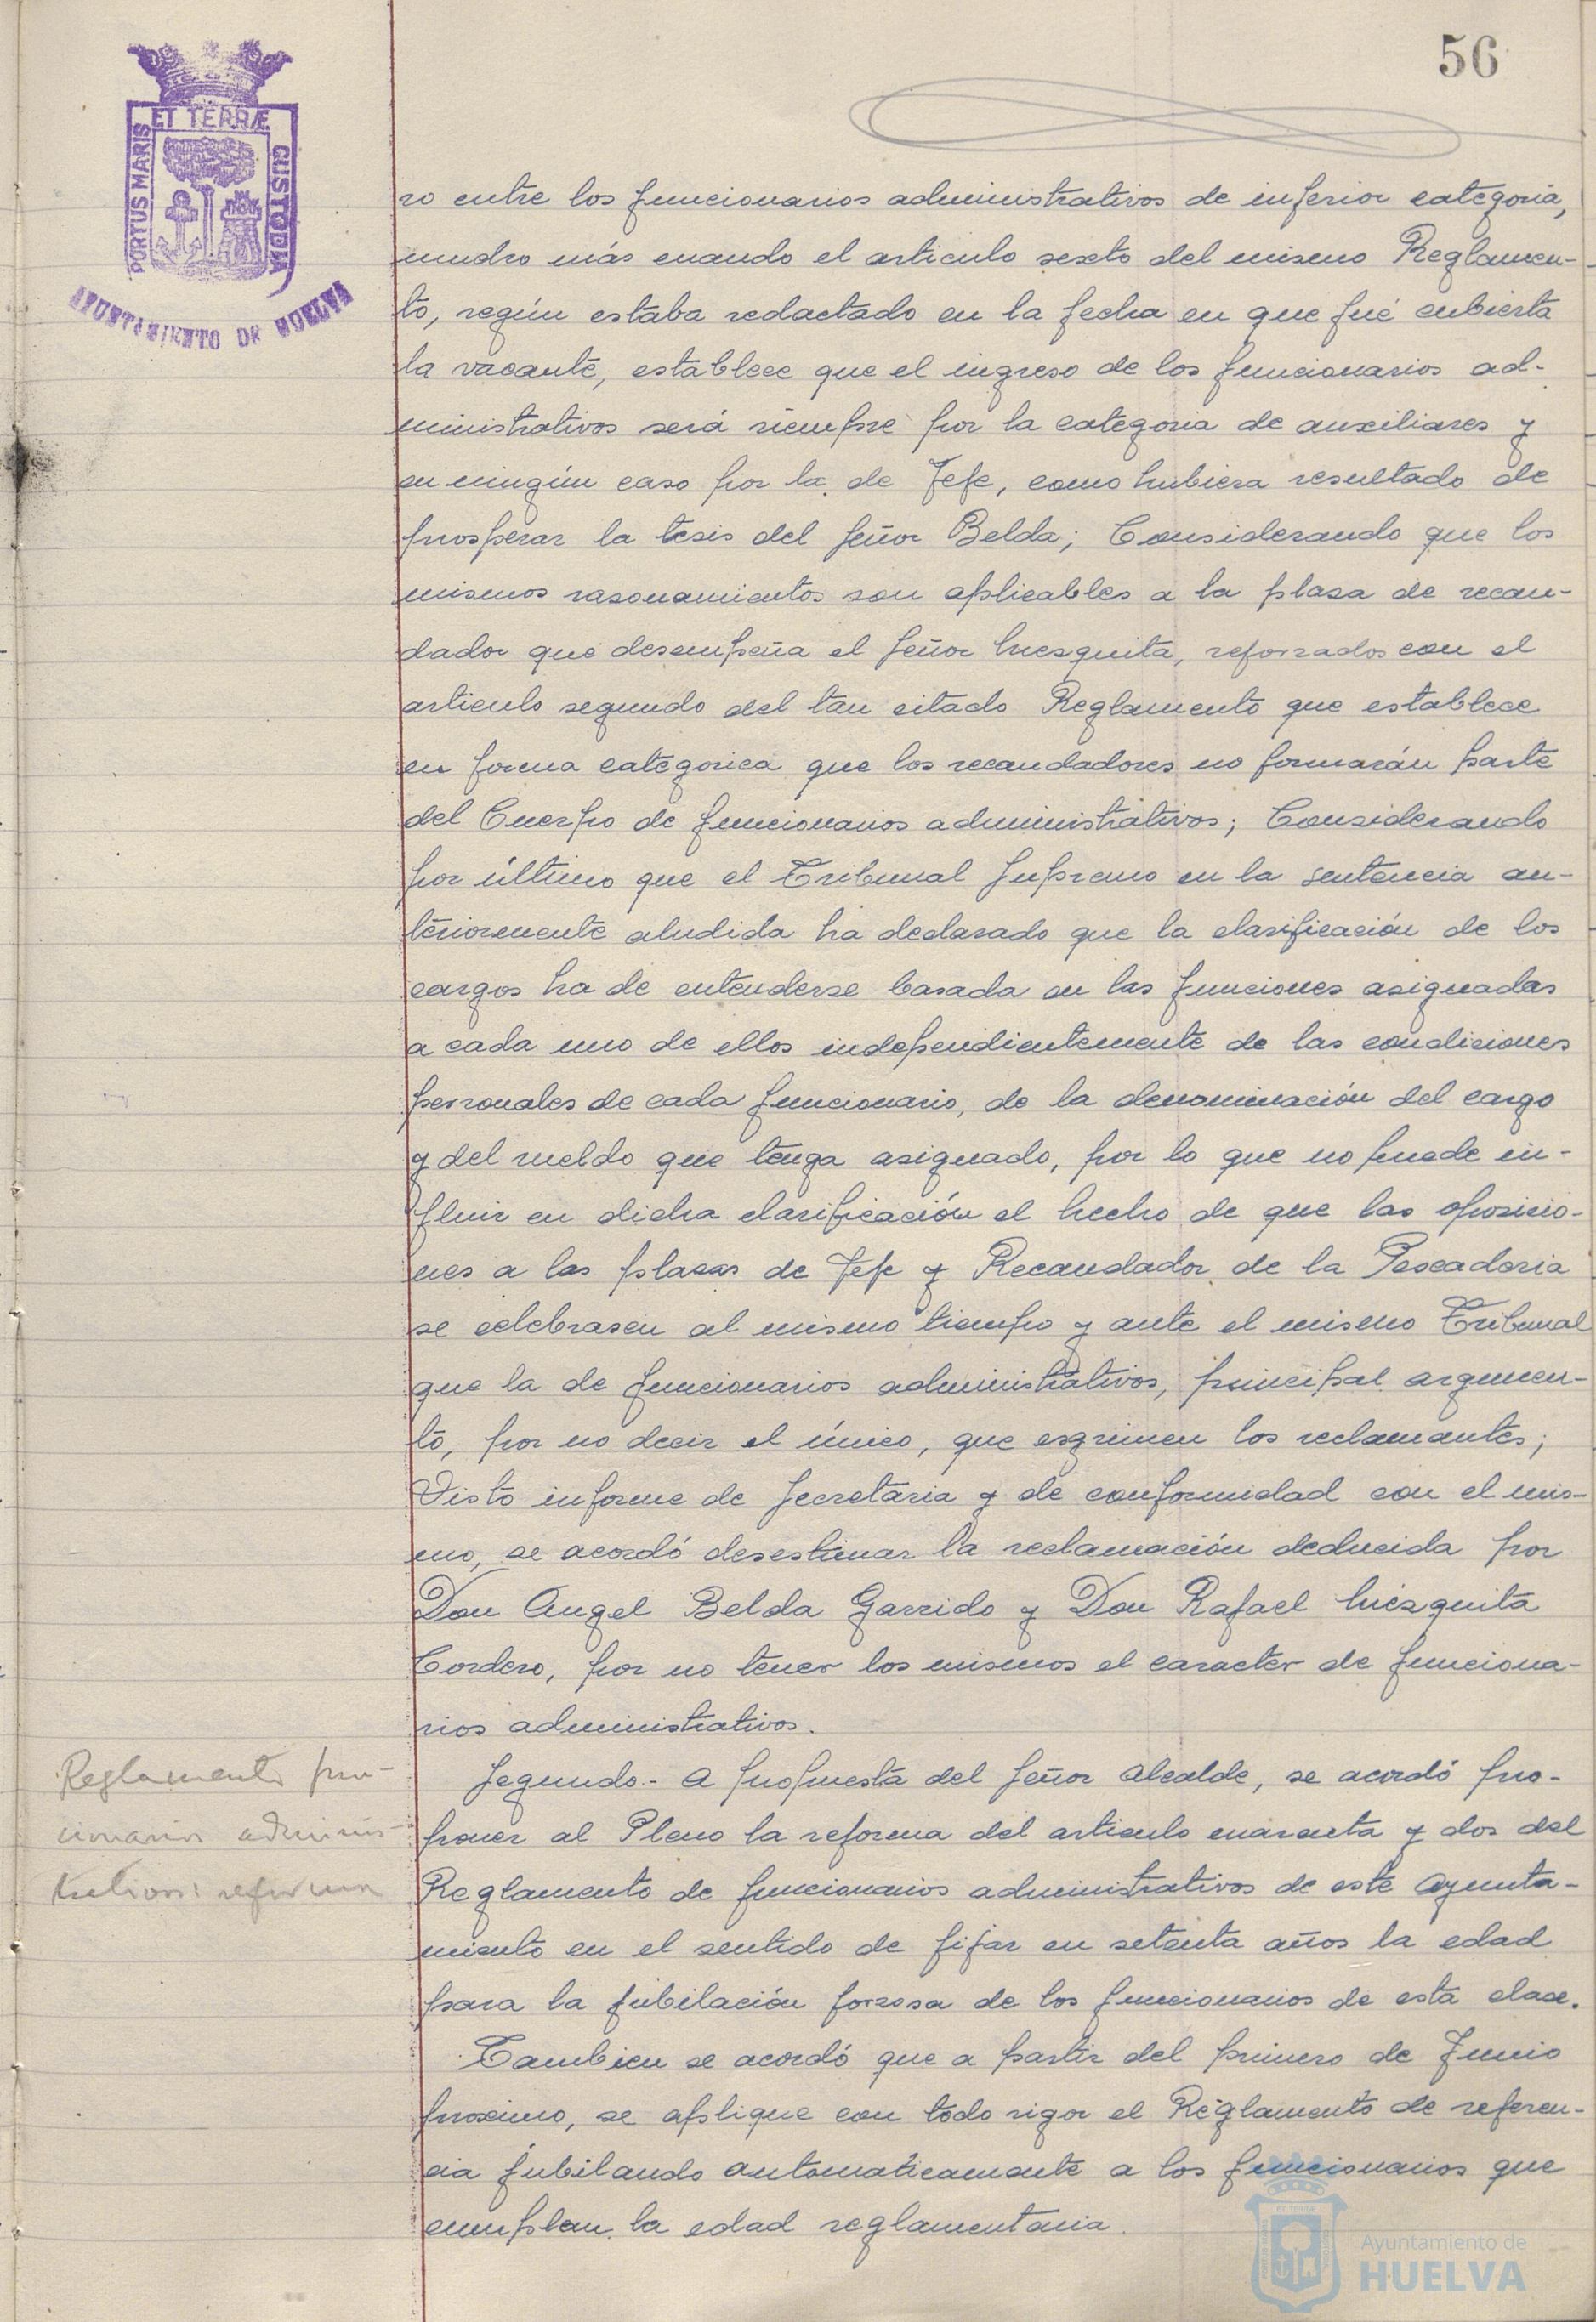 56
ET TERRÆ
PORTUS MARIS
CUSTODIA
AYUNTAMIENTO DE HUELVA
ro entre los funcionarios administrativos de inferior categoria,
mucho más cuando el articulo sexto del mismo Reglamen-
to, según estaba redactado en la fecha en que fué cubierta
la vacante, establece que el ingreso de los funcionarios ad-
ministrativos será siempre por la categoria de auxiliares y
en ningún caso por la de Jefe, como hubiera resultado de
prosperar la tesis del Señor Belda; Considerando que los
mismos rasonamientos son aplicables a la plasa de recau-
dador que desempeña el Señor Mezquita, reforzados con el
articulo segundo del tan citado Reglamento que establece
en forma categorica que los recaudadores no formarán parte
del Cuerpo de funcionarios administrativos; Considerando
por último que el Tribunal Supremo en la sentencia an-
teriormente aludida ha declarado que la clasificación de los
cargos ha de entenderse basada en las funciones asignadas
a cada uno de ellos independientemente de las condiciones
personales de cada funcionario, de la denominación del cargo
y del sueldo que tenga asignado, por lo que no puede in-
fluir en dicha clasificación el hecho de que las oposicio-
nes a las plasas de Jefe y Recaudador de la Pescaderia
se celebrasen al mismo tiempo y ante el mismo Tribunal
que la de funcionarios administrativos, principal argumen-
to, por no decir el único, que esgrimen los reclamantes;
Visto informe de Secretaria y de conformidad con el mis-
mo, se acordó desestimar la reclamación deducida por
Don Angel Belda Garrido y Don Rafael Mézquita
Cordero, por no tener los mismos el caracter de funciona-
rios administrativos.
Reglamento fun-
cionarios adminis-
trativos: reforma
Segundo.- A propuesta del Señor Alcalde, se acordó pro-
poner al Pleno la reforma del articulo cuarenta y dos del
Reglamento de funcionarios administrativos de este Ayunta-
miento en el sentido de fijar en setenta años la edad
para la jubilación forzosa de los funcionarios de esta clase.
Tambien se acordó que a partir del primero de Junio
proximo, se aplique con todo rigor el Reglamento de referen-
cia jubilando automaticamente a los funcionarios que
cumplan la edad reglamentaria.
Ayuntamiento de
HUELVA